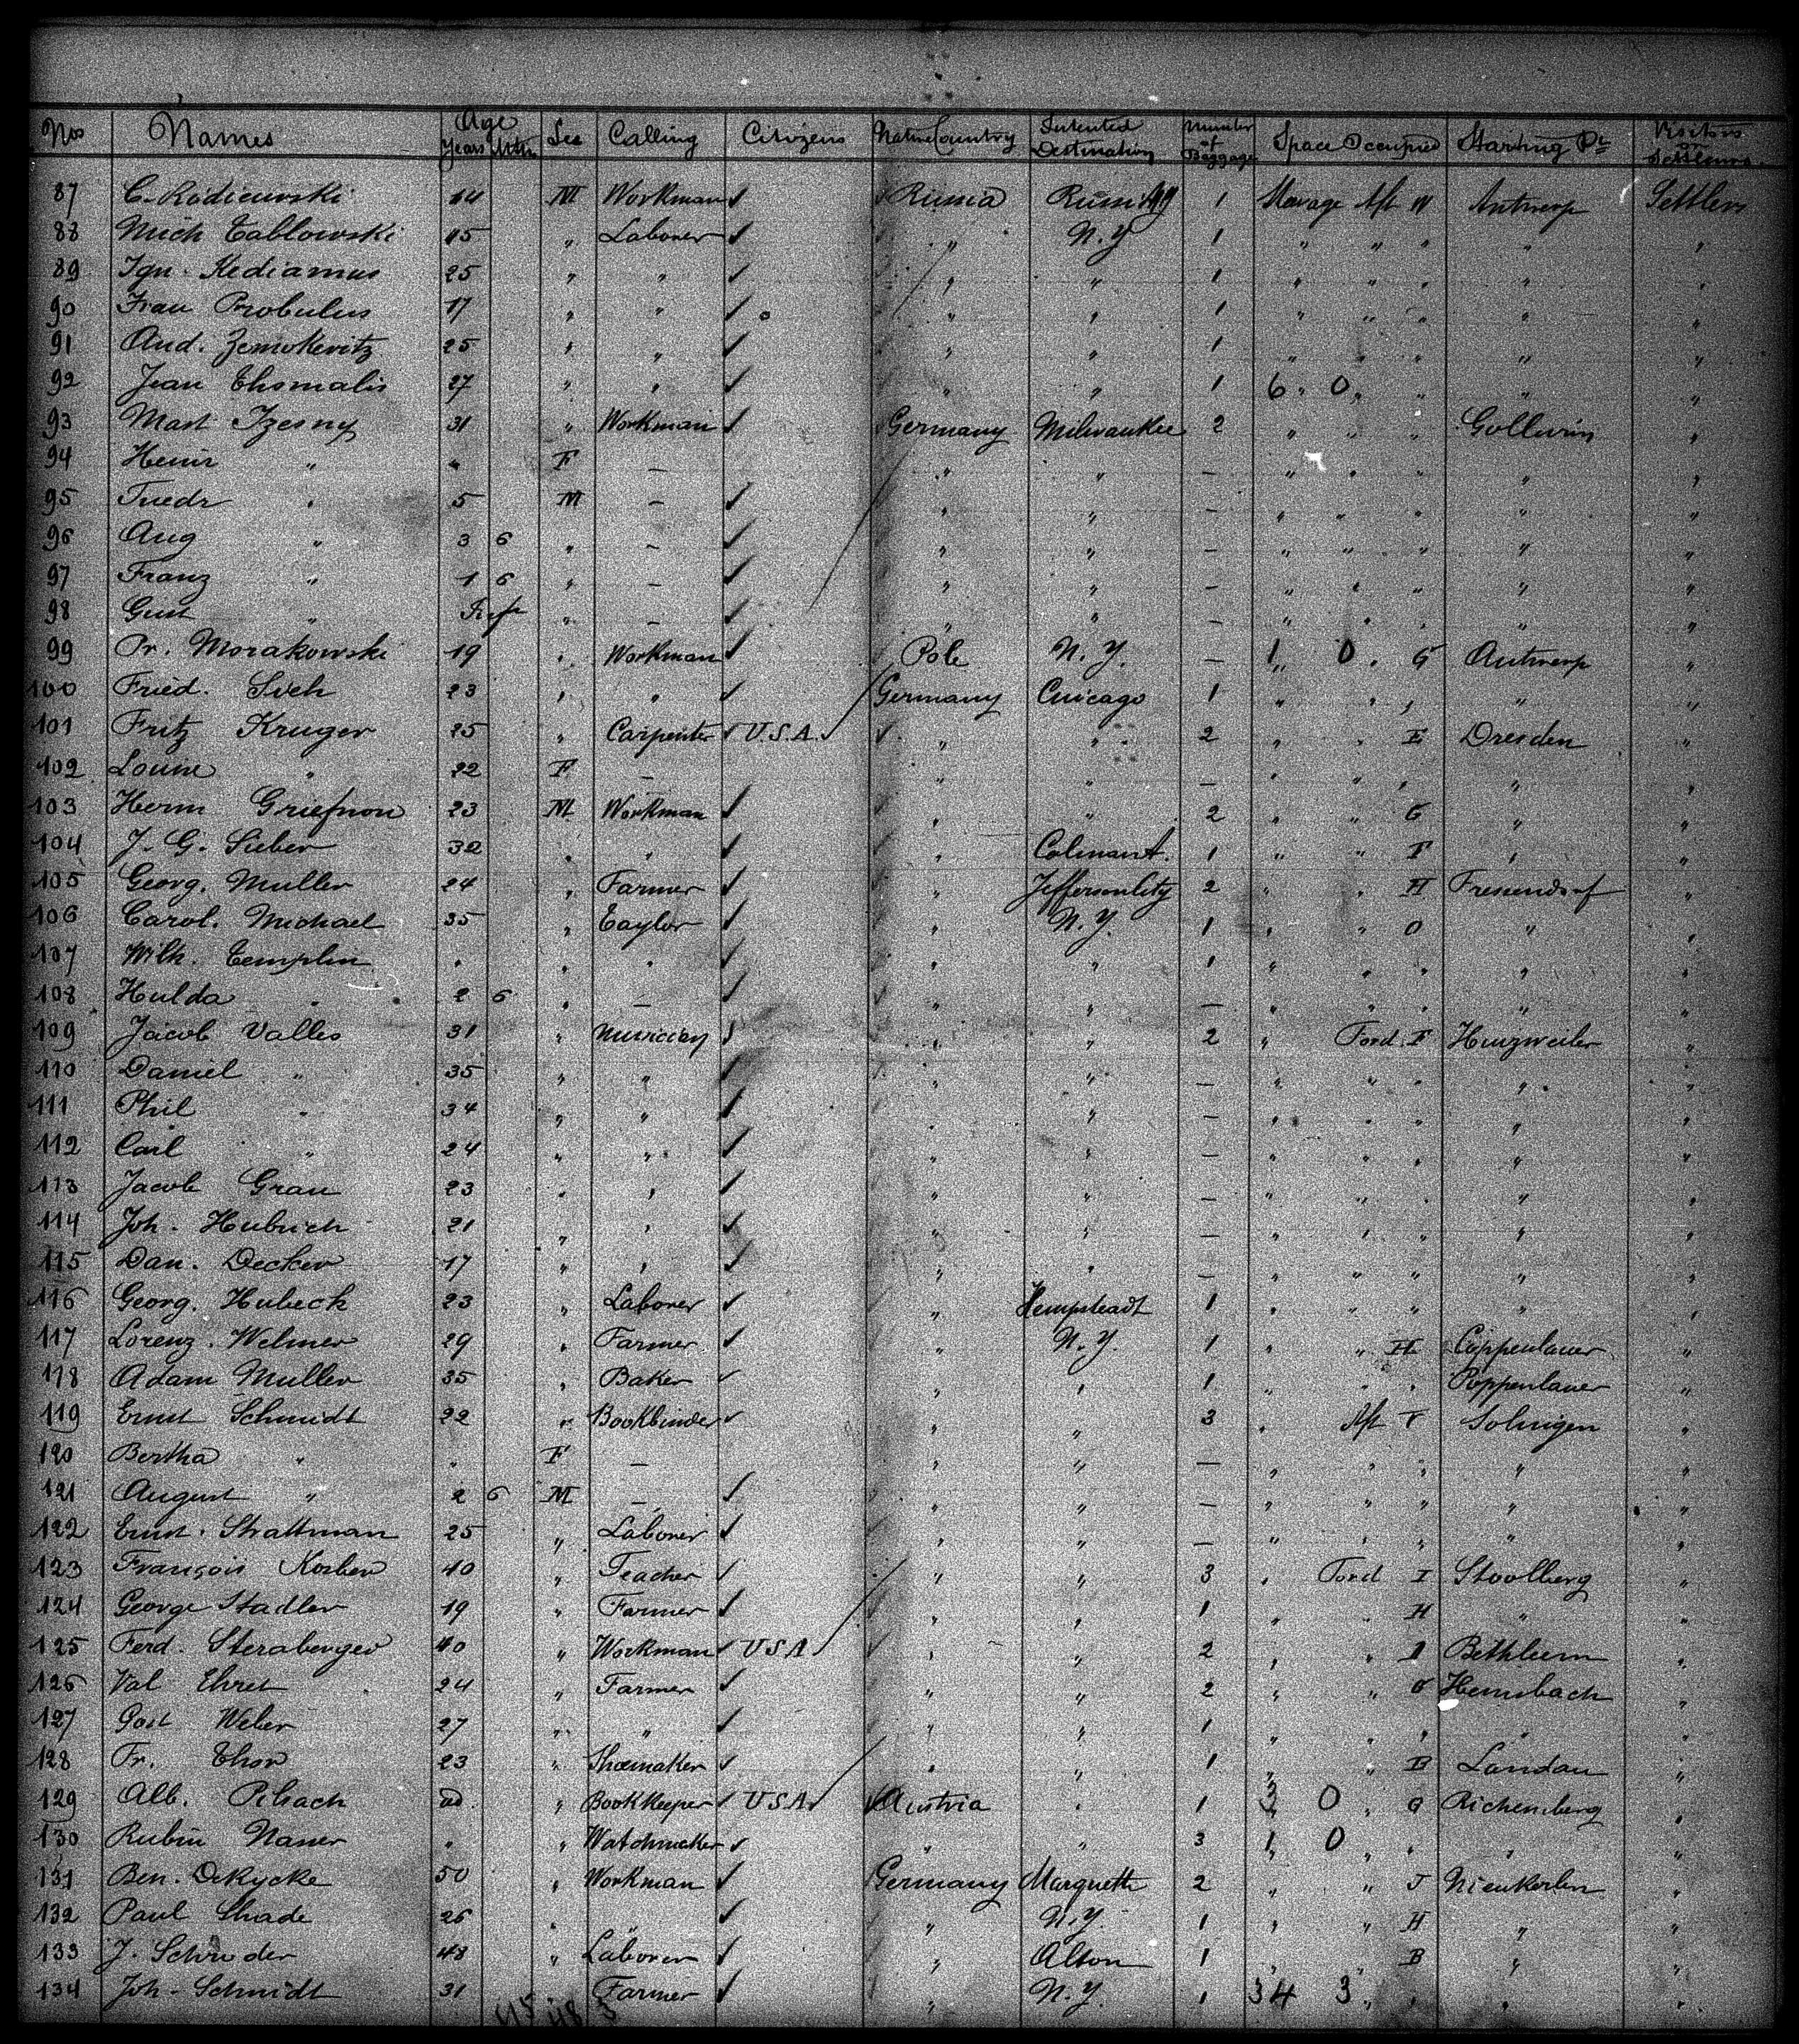 Nos Names Age Years Mths Sex Calling Citizens Native Country Intended Destination Number of Baggage Space Occupied Starting Pt Visitors or Settlers
87 C. Radicewski 44 M Workman ✓ Russia 1 Aft Antwerp Settlers
88 Mich Tablowski 45 " Laborer ✓ " N.Y 1 " " " " "
89 Ign. Kediamus 25 " " ✓ " " 1 " " " " "
90 Frau Probulus 17 " " ✓ " " 1 " " " " "
91 And. Zemokevitz 25 " " ✓ " " 1 " " " " "
92 Jean Thomalis 27 " " ✓ " " 1 6 " 0 " " " "
93 Mart Izesny 31 " Workman ✓ Germany Milwaukee 2 " " " "
94 " " F — " " — " " " " "
95 Friedr " 5 M — ✓ " " — " " " " "
96 Aug " 3 6 " — ✓ " " — " " " " "
97 Franz " 1 6 " — ✓ " " — " " " " "
98 Gust " " — ✓ " " — " " " " "
99 Pr. Morakowski 19 " Workman ✓ Pole N.Y. — 1 " 0 " G Antwerp "
100 Fried. 23 " " ✓ Germany Chicago 1 " " " " "
101 Fritz Kruger 25 " Carpenter ✓ U.S.A. ✓ " " 2 " " E Dresden "
102 Louise " 22 F — " " — " " " " "
103 Herm 23 M Workman ✓ " " 2 " " G " "
104 J. G. Sieber 32 " " ✓ " 1 " " F " "
105 Georg. Muller 24 " Farmer ✓ " Jefferson City 2 " " H "
106 Carol. Michael 35 " Taylor ✓ " N.Y. 1 " " O " "
107 Wilh. Templin " " " ✓ " " 1 " " " " "
108 Hulda " 2 6 " — ✓ " " — " " " " "
109 Jacob Valles 31 " Musician ✓ " " 2 " Ford. F Hinzweiler "
110 Daniel " 35 " " ✓ " " — " " " " "
111 Phil " 34 " " ✓ " " — " " " " "
112 Carl " 24 " " ✓ " " — " " " " "
113 Jacob Grau 23 " " ✓ " " — " " " " "
114 Joh. Hubrich 21 " " ✓ " " — " " " " "
115 Dan. Decker 17 " " ✓ " " — " " " " "
116 Georg. Hubeck 23 " Laborer ✓ " Hempsteadt 1 " " " " "
117 Lorenz. Welmer 29 " Farmer ✓ " N.Y. 1 " " H Coppenlauer "
118 Adam Muller 35 " Baker ✓ " " 1 " " " Poppenlauer "
119 Ernst Schmidt 22 " Bookbinder ✓ " " 3 " Aft Solingen "
120 Bertha " " F — " " — " " " " "
121 August " 2 6 M — ✓ " " — " " " " "
122 Ernst. Strattman 25 " Laborer ✓ " " — " " " " "
123 François Korben 40 " Teacher ✓ " " 3 " Ford I Stoolberg "
124 George Stadler 19 " Farmer ✓ " " 1 " " H " "
125 Ferd. Steraberger 40 " Workman ✓ U.S.A ✓ " " 2 " " Bethleem "
126 Val Ehret 24 " Farmer ✓ " " 2 " " Hemsbach "
127 Gost Weber 27 " " ✓ " " 1 " " " " "
128 Fr. Thor 23 " Shoemaker ✓ " " 1 " " B Landau "
129 Alb. " Bookkeeper ✓ U.S.A ✓ Austria " 1 3 0 " G Richenberg "
130 Rubin Naner " " Watchmaker ✓ " " 3 1 " 0 " " " "
131 Ben. DeKycke 50 " Workman ✓ Germany Marquette 2 " " J Nieukerken "
132 Paul Shade 26 " ✓ " N.Y. 1 " " H " "
133 J. Schrader 48 " Laborer ✓ " Alton 1 " " B " "
134 Joh. Schmidt 31 " Farmer ✓ " N.Y. 1 34 3 " " " "
45 48 5